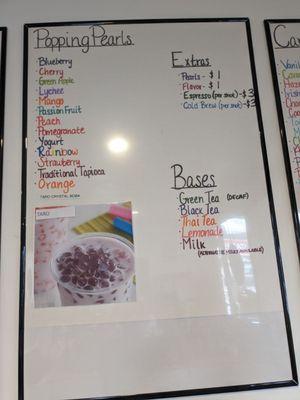 Popping Pearls
·Blueberry
·Cherry
·Green Apple
·Lychee
·Mango
·Passion Fruit
·Peach
·Pomegranate
·Yogurt
·Rainbow
·Strawberry
·Traditional Tapioca
·Orange
TARO CRYSTAL BOBA
TARO
Extras
·Pearls - $1
·Flavor - $1
·Espresso (per shot) - $3
·Cold Brew (per shot) - $3
Bases
·Green Tea (DECAF)
·Black Tea
·Thai Tea
·Lemonade
·Milk
(ALTERNATIVE MILKS AVAILABLE)